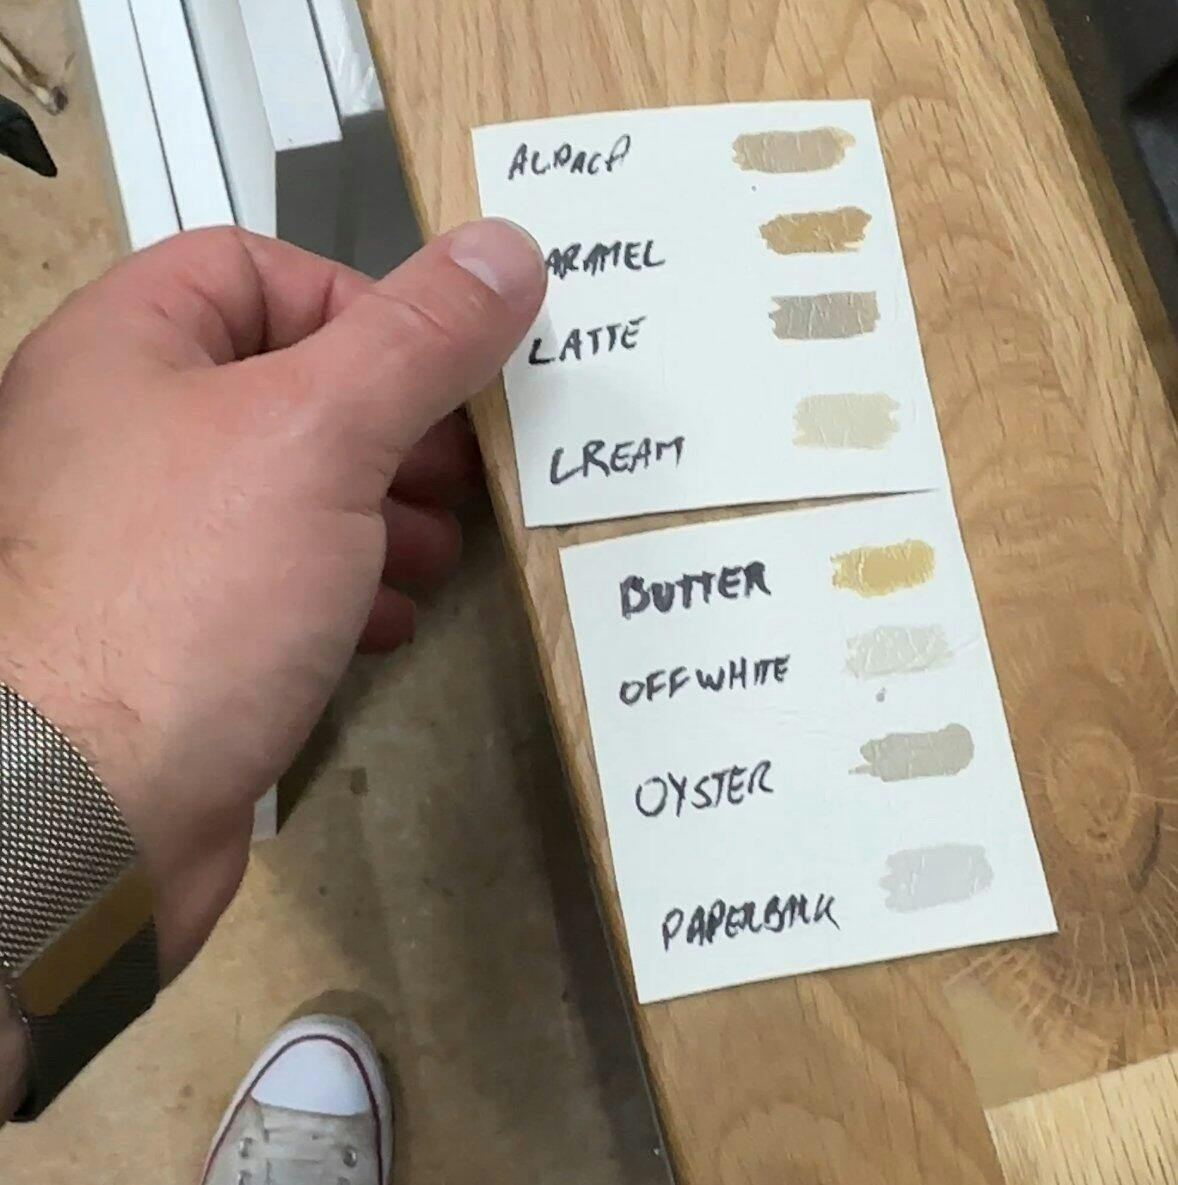 ALPACA
ARAMEL
LATTE
CREAM
BUTTER
OFF WHITE
OYSTER
PAPERBACK